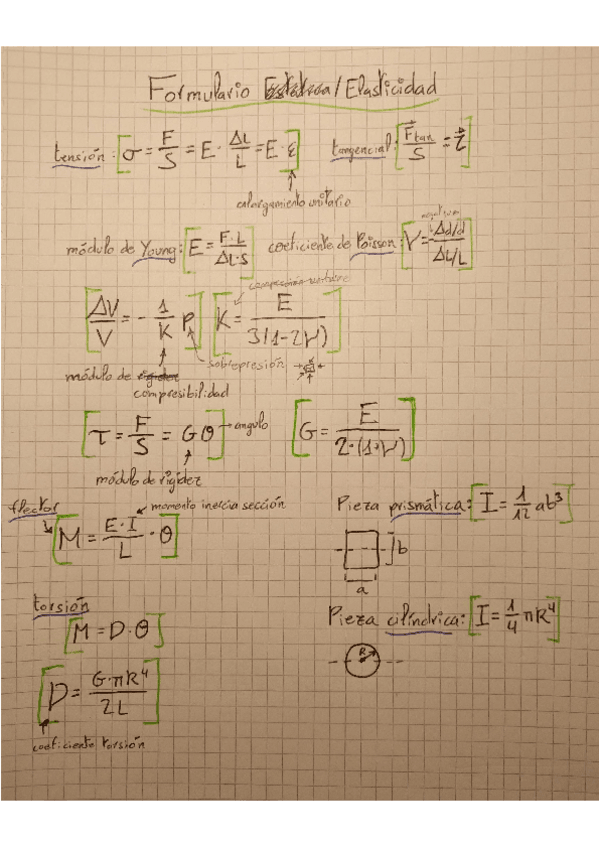 Formulario /Elasticidad
tensión: σ = F/S = E · ΔL/L = E · ε
tangencial: F⃗tan/S = τ⃗
alargamiento unitario
módulo de Young: E = F·L/ΔL·S
coeficiente de Poisson: ν = -Δd/d / ΔL/L
ΔV/V = - 1/K p
K = E/3(1-2ν)
sobrepresión
módulo de
compresibilidad
τ = F/S = Gθ → angulo
G = E/2·(1+ν)
módulo de rigidez
flector
momento inercia sección
M = E·I/L · θ
Pieza prismática: I = 1/12 ab³
b
a
torsión
M = D·θ
Pieza cilíndrica: I = 1/4 πR⁴
R
D = G·πR⁴/2L
coeficiente torsión